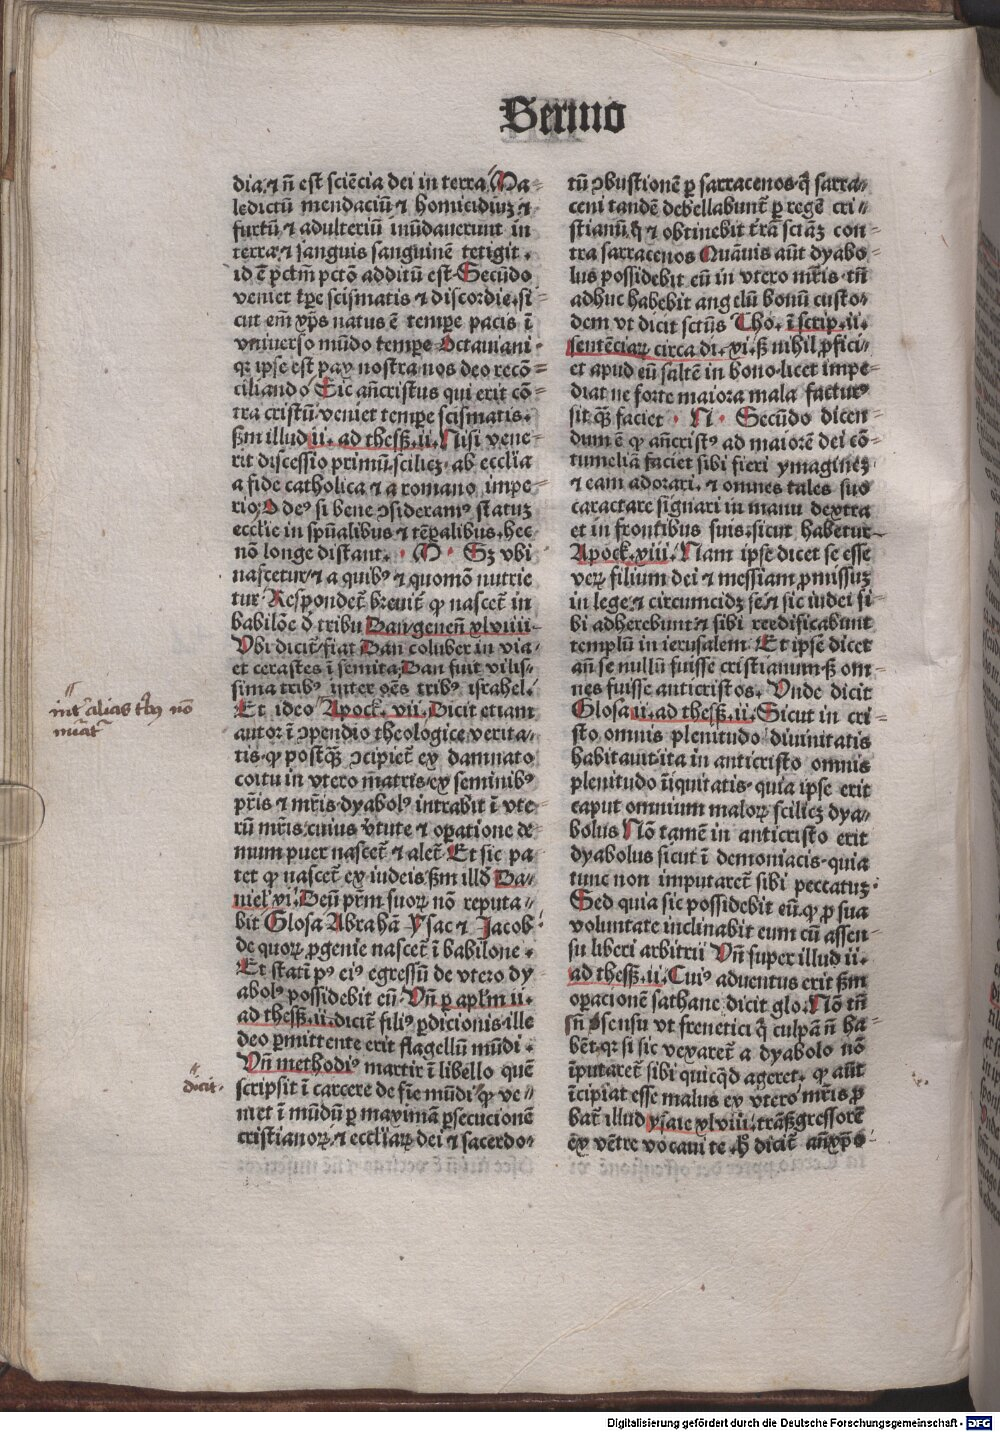 Sermo
dia. ⁊ nō est sciēcia dei in terra Ma-
ledictū mendaciū ⁊ homicidiuꝫ ⁊
furtū ⁊ adulteriū inūdauerunt in
terra. ⁊ sanguis sanguinē tetigit.
id ē pctm̄ pctō additū est. Secūdo
veniet tꝑe scismatis ⁊ discordie. si-
cut em̄ xp̄s natus ē tempe pacis ī
vniuerso mūdo tempe Octauiani
qꝛ ipse est pax nostra nos deo recō-
ciliando Sic añcristus qui erit cō-
tra cristū veniet tempe scismatis.
ẜm illud ii. ad thesẜ. ii. Nisi vene-
rit discessio primū. scilicꝫ ab ecclīa
a fide catholica ⁊ a romano impe-
rio. O deꝰ si bene ↄsideramꝰ statuꝫ
ecclīe in spūalibus ⁊ tēꝑalibus. hec
nō longe distant. M Sꝫ vbi
nascetur ⁊ a quibꝰ ⁊ quomō nutrie
tur Respondet̄ breuit̄ ꝙ nascet̄ in
babilōe d̄ tribu Dan genen̄ xlviiii
Vbi dicit̄ fiat Dan coluber in via
et cerastes ī semita. Dan fuit vilis-
sima tribꝰ inter oēs tribꝰ israhel.
Et ideo Apock. vii. Dicit etiam
autor ī ↄpendio theologice verita-
tis. ꝙ postqꝫ ↄcipiet̄ ex damnato
coitu in vtero m̄atris. ex seminibꝰ
pr̄is ⁊ mr̄is dyabolꝰ intrabit ī vte-
rū mr̄is. cuius v̄tute ⁊ oꝑatione de
mum puer nascet̄ ⁊ alet̄. Et sic pa
tet ꝙ nascet̄ ex iudeis ẜm illd̄ Da-
niel̄ xi. Deū pr̄m suoꝝ nō reputa-
bit Glosa Abrahā Ysac ⁊ Jacob
de quoꝝ ꝓgenie nascet̄ ī babilone.
Et statī pꝰ eiꝰ egressū de vtero dy-
abolꝰ possidebit eū. Vn̄ ꝑ apl̄m ii.
ad thesẜ. ii. dicit̄ filiꝰ ꝑdicionis. ille
deo ꝑmittente erit flagellū mūdi.
Vn̄ methodiꝰ martir ī libello quē
scripsit ī carcere de fīe mūdi ꝙ ve-
niet ī mūdū ꝑ maximā ꝑsecucionē
cristianoꝝ. ⁊ eccl̄iaꝝ dei ⁊ sacerdo-
tū ↄbustionē ꝑ sarracenos. q̄ sarra-
ceni tandē debellabunt̄ ꝑ regē cri-
stianū. q̄ ⁊ obtinebit t̄rā sc̄tāꝫ con-
tra sarracenos Quāuis aūt dyabo-
lus possidebit eū in vtero mr̄is. tn̄
adhuc habebit angelū bonū custo-
dem vt dicit sctūs Tho. ī scrip. ii.
sentēciaꝝ circa di. xi. ẜ nihil ꝓfici-
et apud eū saltē in bono. licet impe-
diat ne forte maiora mala facturꝰ
sit qꝫ faciet. N Secūdo dicen-
dum ē ꝙ añcristꝰ ad maiorē dei cō-
tumeliā faciet sibi fieri ymagineꝫ
⁊ eam adorari. ⁊ omnes tales suo
caractare signari in manu dextra
et in frontibus suis. sicut habetur
Apock. xiii. Nam ipse dicet se esse
veꝝ filium dei ⁊ messiam ꝓmissuꝫ
in lege ⁊ circumcidꝫ se. ⁊ sic iudei si-
bi adherebunt ⁊ sibi reedificabunt
templū in ierusalem. Et ipse dicet
an̄ se nullū fuisse cristianum. ẜ om-
nes fuisse anticristos. Vnde dicit
Glosa ii. ad thesẜ. ii. Sicut in cri-
sto omnis plenitudo diuinitatis
habitauit. ita in anticristo omnis
plenitudo īiquitatis. quia ipse erit
caput omnium maloꝝ scilicꝫ dya-
bolus Nō tamē in anticristo erit
dyabolus sicut ī demoniacis. quia
tunc non imputaret̄ sibi peccatuꝫ.
Sed quia sic possidebit eū. ꝙ ꝓ sua
voluntate inclinabit eum cū assen-
su liberi arbitrii Vn̄ super illud ii.
ad thesẜ. ii. Cuiꝰ aduentus erit ẜm
oꝑacionē sathane dicit glo. Nō tn̄
sn̄ ↄsensu vt frenetici q̄ culpā n̄ ha-
bēt. qꝛ si sic vexaret̄ a dyabolo nō
īputaret̄ sibi quicqͥd ageret. ꝙ aūt
īcipiat esse malus ex vtero mr̄is ꝓ
bat̄ illud ysaie xlviii. trāsgressorē
ex vētre vocaui te. h̄ dicit̄ añxp̄o
dicit.
Digitalisierung gefördert durch die Deutsche Forschungsgemeinschaft - DFG